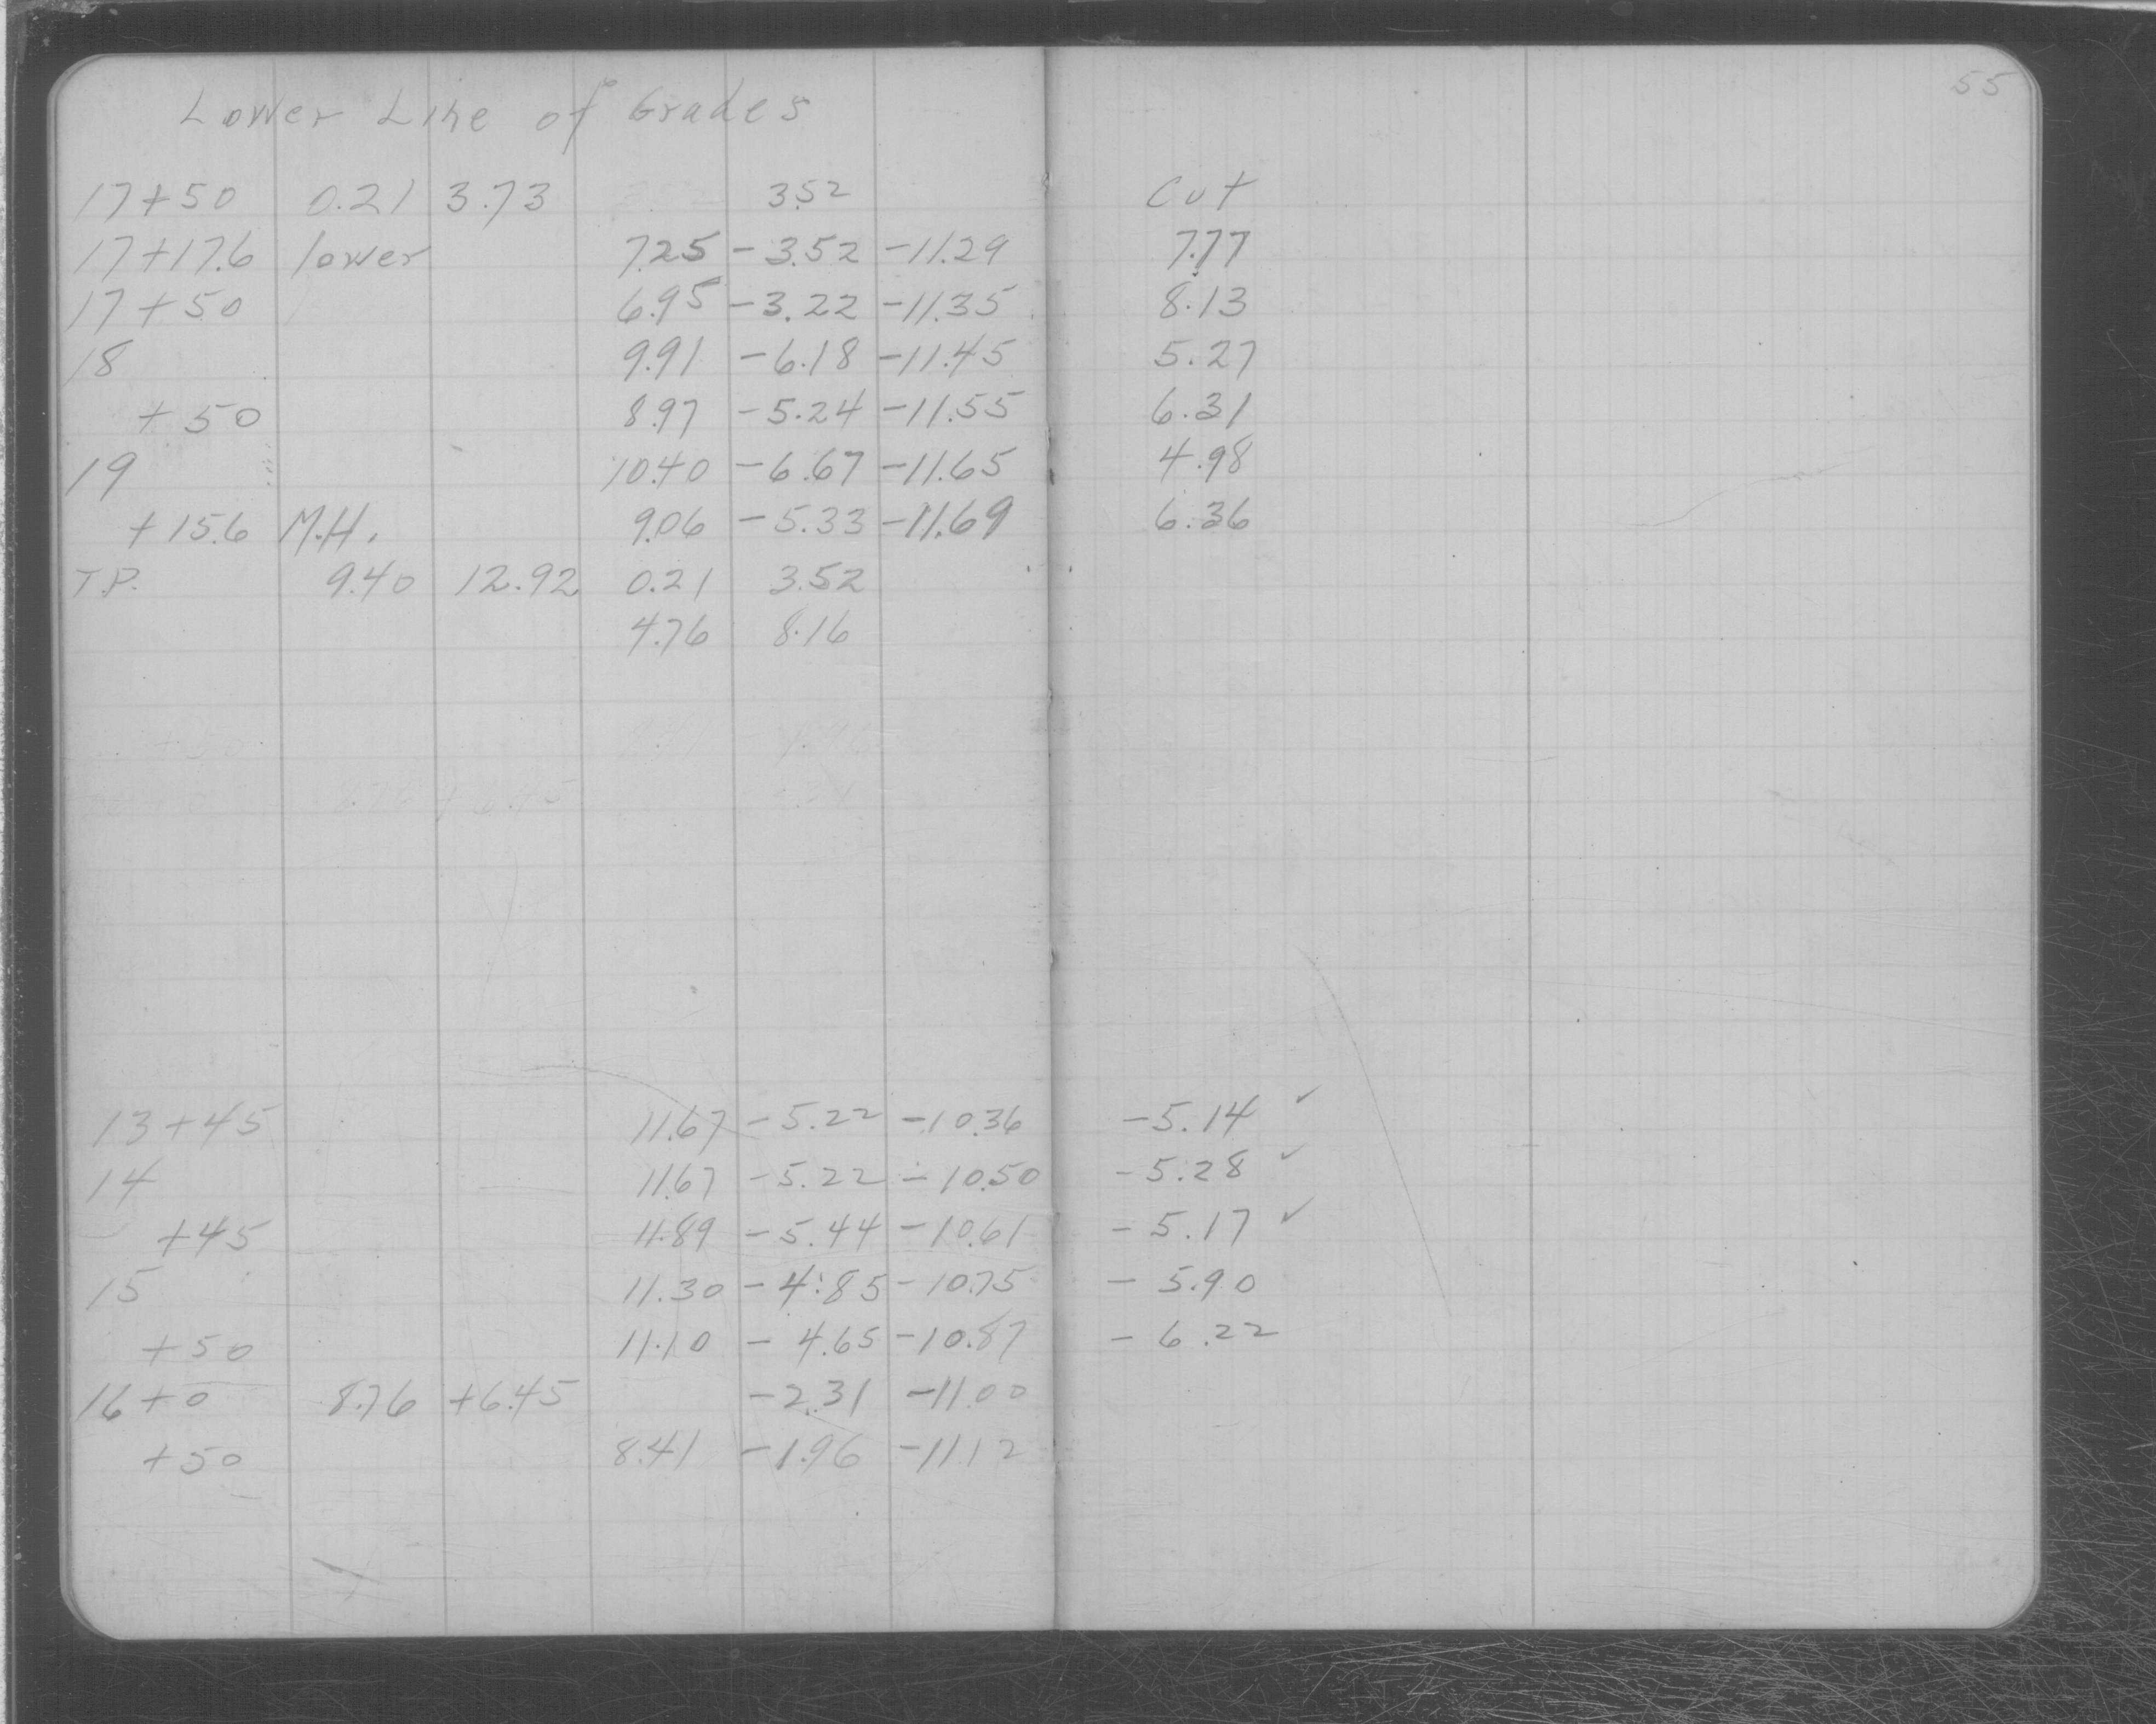 55
Lower Line of Grades
17+50 0.21 3.73 3.52 Cut
17+17.6 lower 7.25 -3.52 -11.29 7.77
17+50 6.95 -3.22 -11.35 8.13
18 9.91 -6.18 -11.45 5.27
+50 8.97 -5.24 -11.55 6.31
19 10.40 -6.67 -11.65 4.98
+15.6 M.H. 9.06 -5.33 -11.69 6.36
T.P. 9.40 12.92 0.21 3.52
4.76 8.16
+50 8.41 1.96
8.76 +6.45 2.31
13+45 11.67 -5.22 -10.36 -5.14 ✓
14 11.67 -5.22 -10.50 -5.28 ✓
+45 11.89 -5.44 -10.61 -5.17 ✓
15 11.30 -4.85 -10.75 -5.90
+50 11.10 -4.65 -10.87 -6.22
16+0 8.76 +6.45 -2.31 -11.00
+50 8.41 -1.96 -11.12